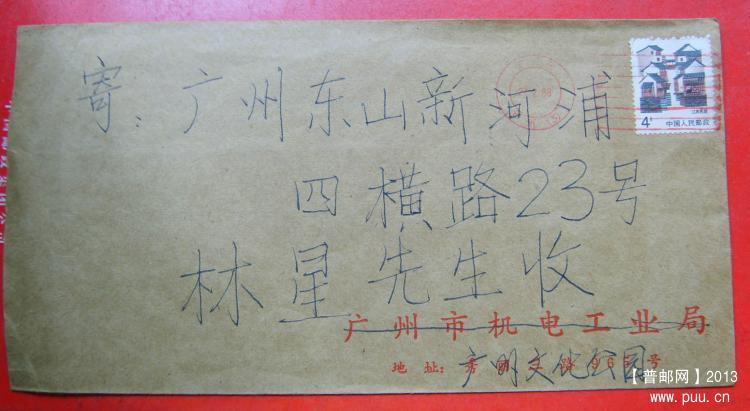 寄：广州东山新河浦
四横路23号
林星先生收
广州市机电工业局
地址：
广明文化公园
4分
中国人民邮政
【普邮网】2013
www.puu.cn